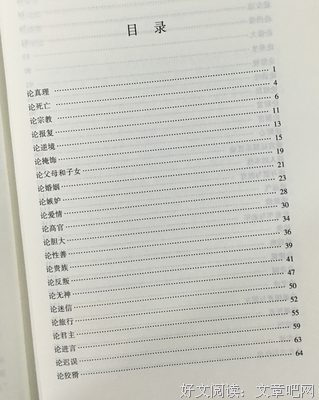 目 录
论真理 …… 1
论死亡 …… 4
论宗教 …… 6
论报复 …… 11
论逆境 …… 13
论掩饰 …… 15
论父母和子女 …… 19
论婚姻 …… 21
论嫉妒 …… 23
论爱情 …… 28
论高官 …… 30
论胆大 …… 34
论性善 …… 36
论贵族 …… 39
论反叛 …… 41
论无神 …… 47
论迷信 …… 50
论旅行 …… 52
论君主 …… 55
论进言 …… 59
论迟误 …… 63
论狡猾 …… 64
好文阅读：文章吧网